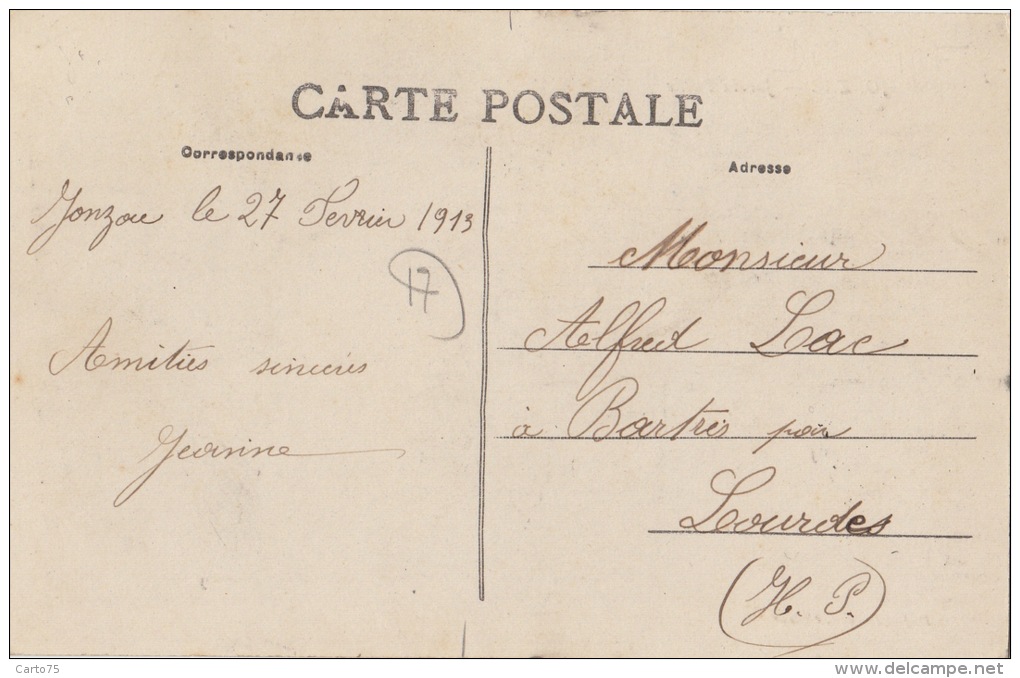 CARTE POSTALE
Correspondance
Jonzac le 27 Fevrier 1913
17
Amitiés sincères
Jeanne
Adresse
Monsieur
Alfred Lac
à Bartrès par
Lourdes
(H. P.)
Carto75
www.delcampe.net